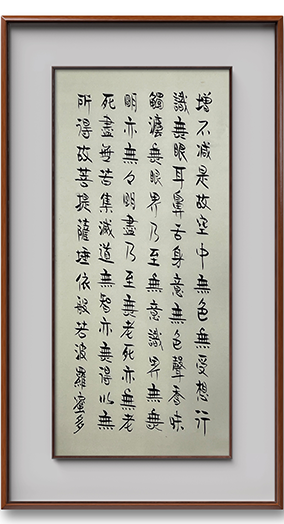 增不减是故空中無色無受想行
識無眼耳鼻舌身意無色聲香味
觸灋無眼界乃至無意識界無無
明亦無々明盡乃至無老死亦無老
死盡無苦集滅道無智亦無得以無
所得故菩提薩埵依般若波羅蜜多